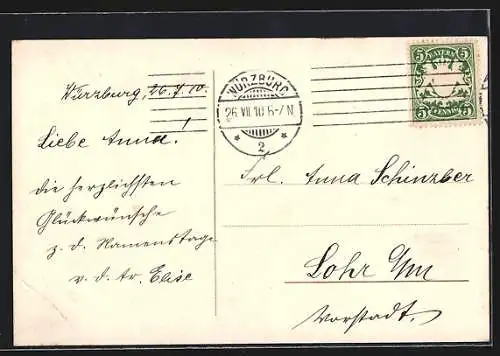 Würzburg, 26.7.10.
Liebe Anna!
die herzlichsten
Glückwünsche
z. d. Namenstage
v. d. tr. Elise
WÜRZBURG
26 VII 10 6-7 N
* 2 *
BAYERN
5 5
5 PFENNIG 5
Frl. Anna Schinzber
Lohr a/m
Vorstadt.